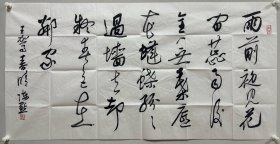 雨前初见花
间蕊雨后
全无叶底
花蜂蝶纷纷
过墙去却
疑春色在
邻家
王驾 春晴